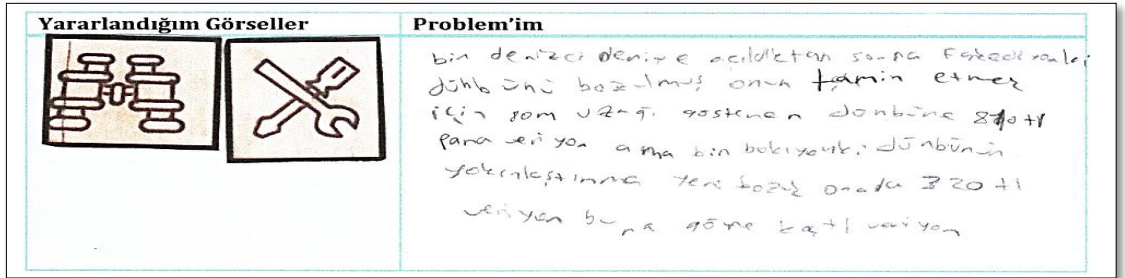 Yararlandığım Görseller
Problem'im
bir denizci denize açıldıktan sonra farkediyorki
dühbünü bozulmuş onun tamir etmek
için 50m uzağı gösteren dönbüne 810 tl
para veriyor ama bir bakıyorki dünbünün
yakınlaştırma yeri bozuk onada 320 tl
veriyor buna göre kaç tl veriyor